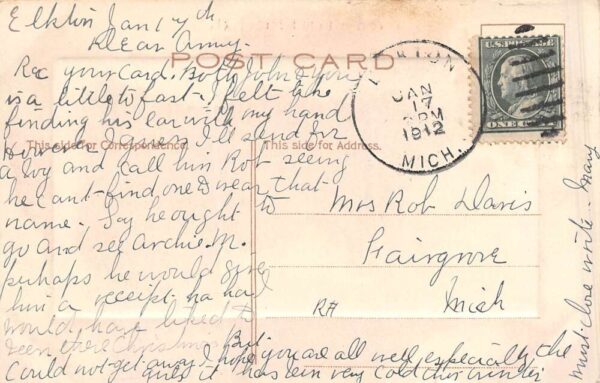 Elkton Jan 17th
Dear Amy.
POST CARD
Rec your card. Both John & you
is a little to fast. I felt like
finding his ear with my hand
I'll send for
This side for Correspondence.
a boy and call him Rob seeing
he cant find one to wear that
name. Say he ought to
go and see Archie. M.
perhaps he would give
him a receipt. ha ha
would have liked to
been there Christmas But
could not get away. I hope you are all well, especially the
girls it has ben very cold this winter
must close write. May
This side for Address.
Mrs Rob Davis
Fairgrove
Mich
RA
ELKTON
JAN
17
PM
1912
MICH.
U.S. POSTAGE
ONE CENT